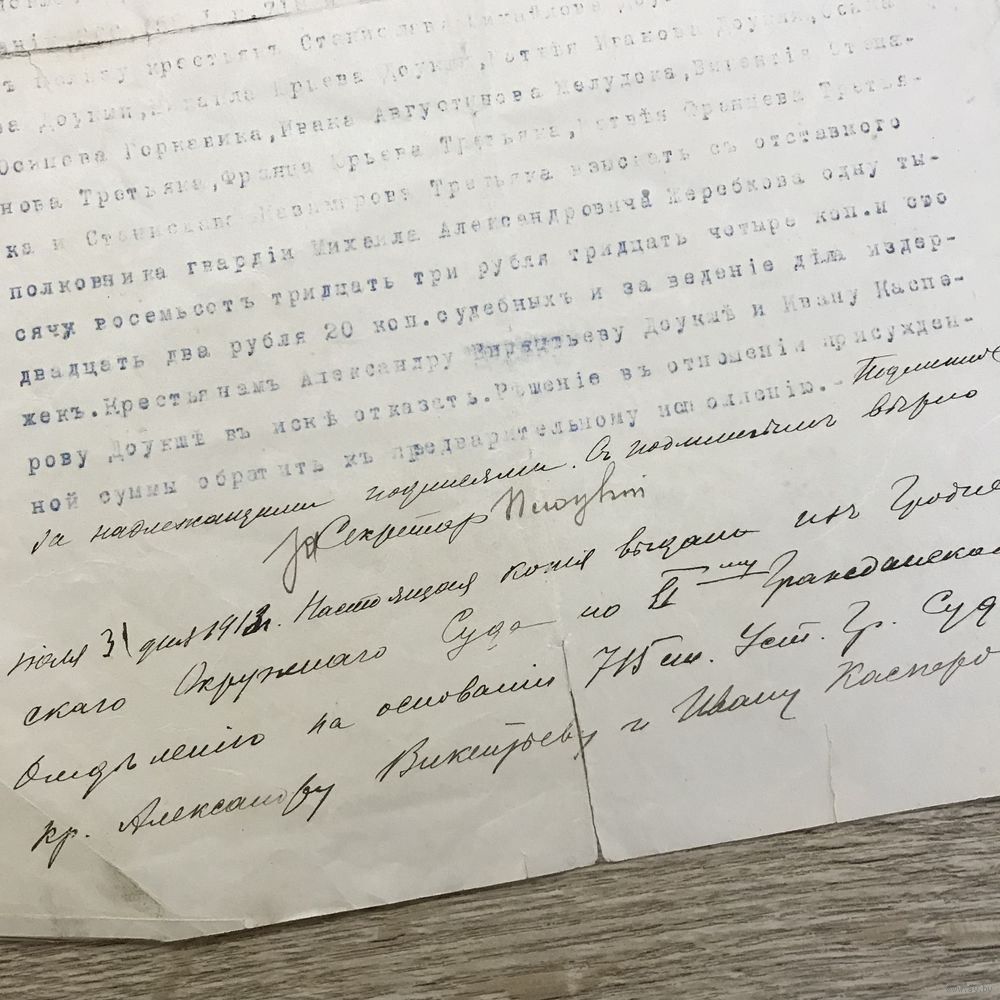 крестьянъ Станислава Михайлова
Доукши, Михаила Юрьева Доукши, Матвѣя Иванова Доукши, Осипа
Осипова Горкавика, Ивана Августинова Желудока, Викентія Степа-
нова Третьяка, Франца Юрьева Третьяка, Матвѣя Францева Третья-
ка и Станислава Казимірова Третьяка взыскать съ отставного
полковника гвардіи Михаила Александровича Жеребкова одну ты-
сячу восемьсотъ тридцать три рубля тридцать четыре коп. и сто
двадцать два рубля 20 коп. судебныхъ и за веденіе дѣла издер-
жекъ. Крестьянамъ Александру Викентьеву Доукшѣ и Ивану Каспе-
рову Доукшѣ въ искѣ отказать. Рѣшеніе въ отношеніи присужден-
ной суммы обратить къ предварительному исполненію. - Подлинное
за надлежащими подписями. Съ подлиннымъ вѣрно
За Секретаря
Іюля 31 дня 1913 г. Настоящая копія выдана изъ Гроднен
скаго Окружнаго Суда по II му Гражданском
Отдѣленію на основаніи 715 ст. Уст. Гр. Суд
кр. Александру Викентьеву и Ивану Касперо